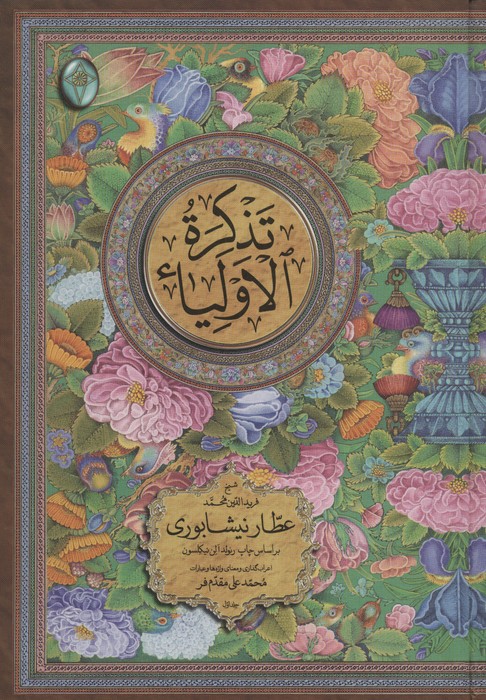 تذكرة
الاولیاء
شیخ
فریدالدین محمد
عطار نیشابوری
بر اساس چاپ رینولد الن نیکلسون
اعراب‌گذاری و معنای واژه‌ها و عبارات
محمد علی مقدم فر
جلد اول